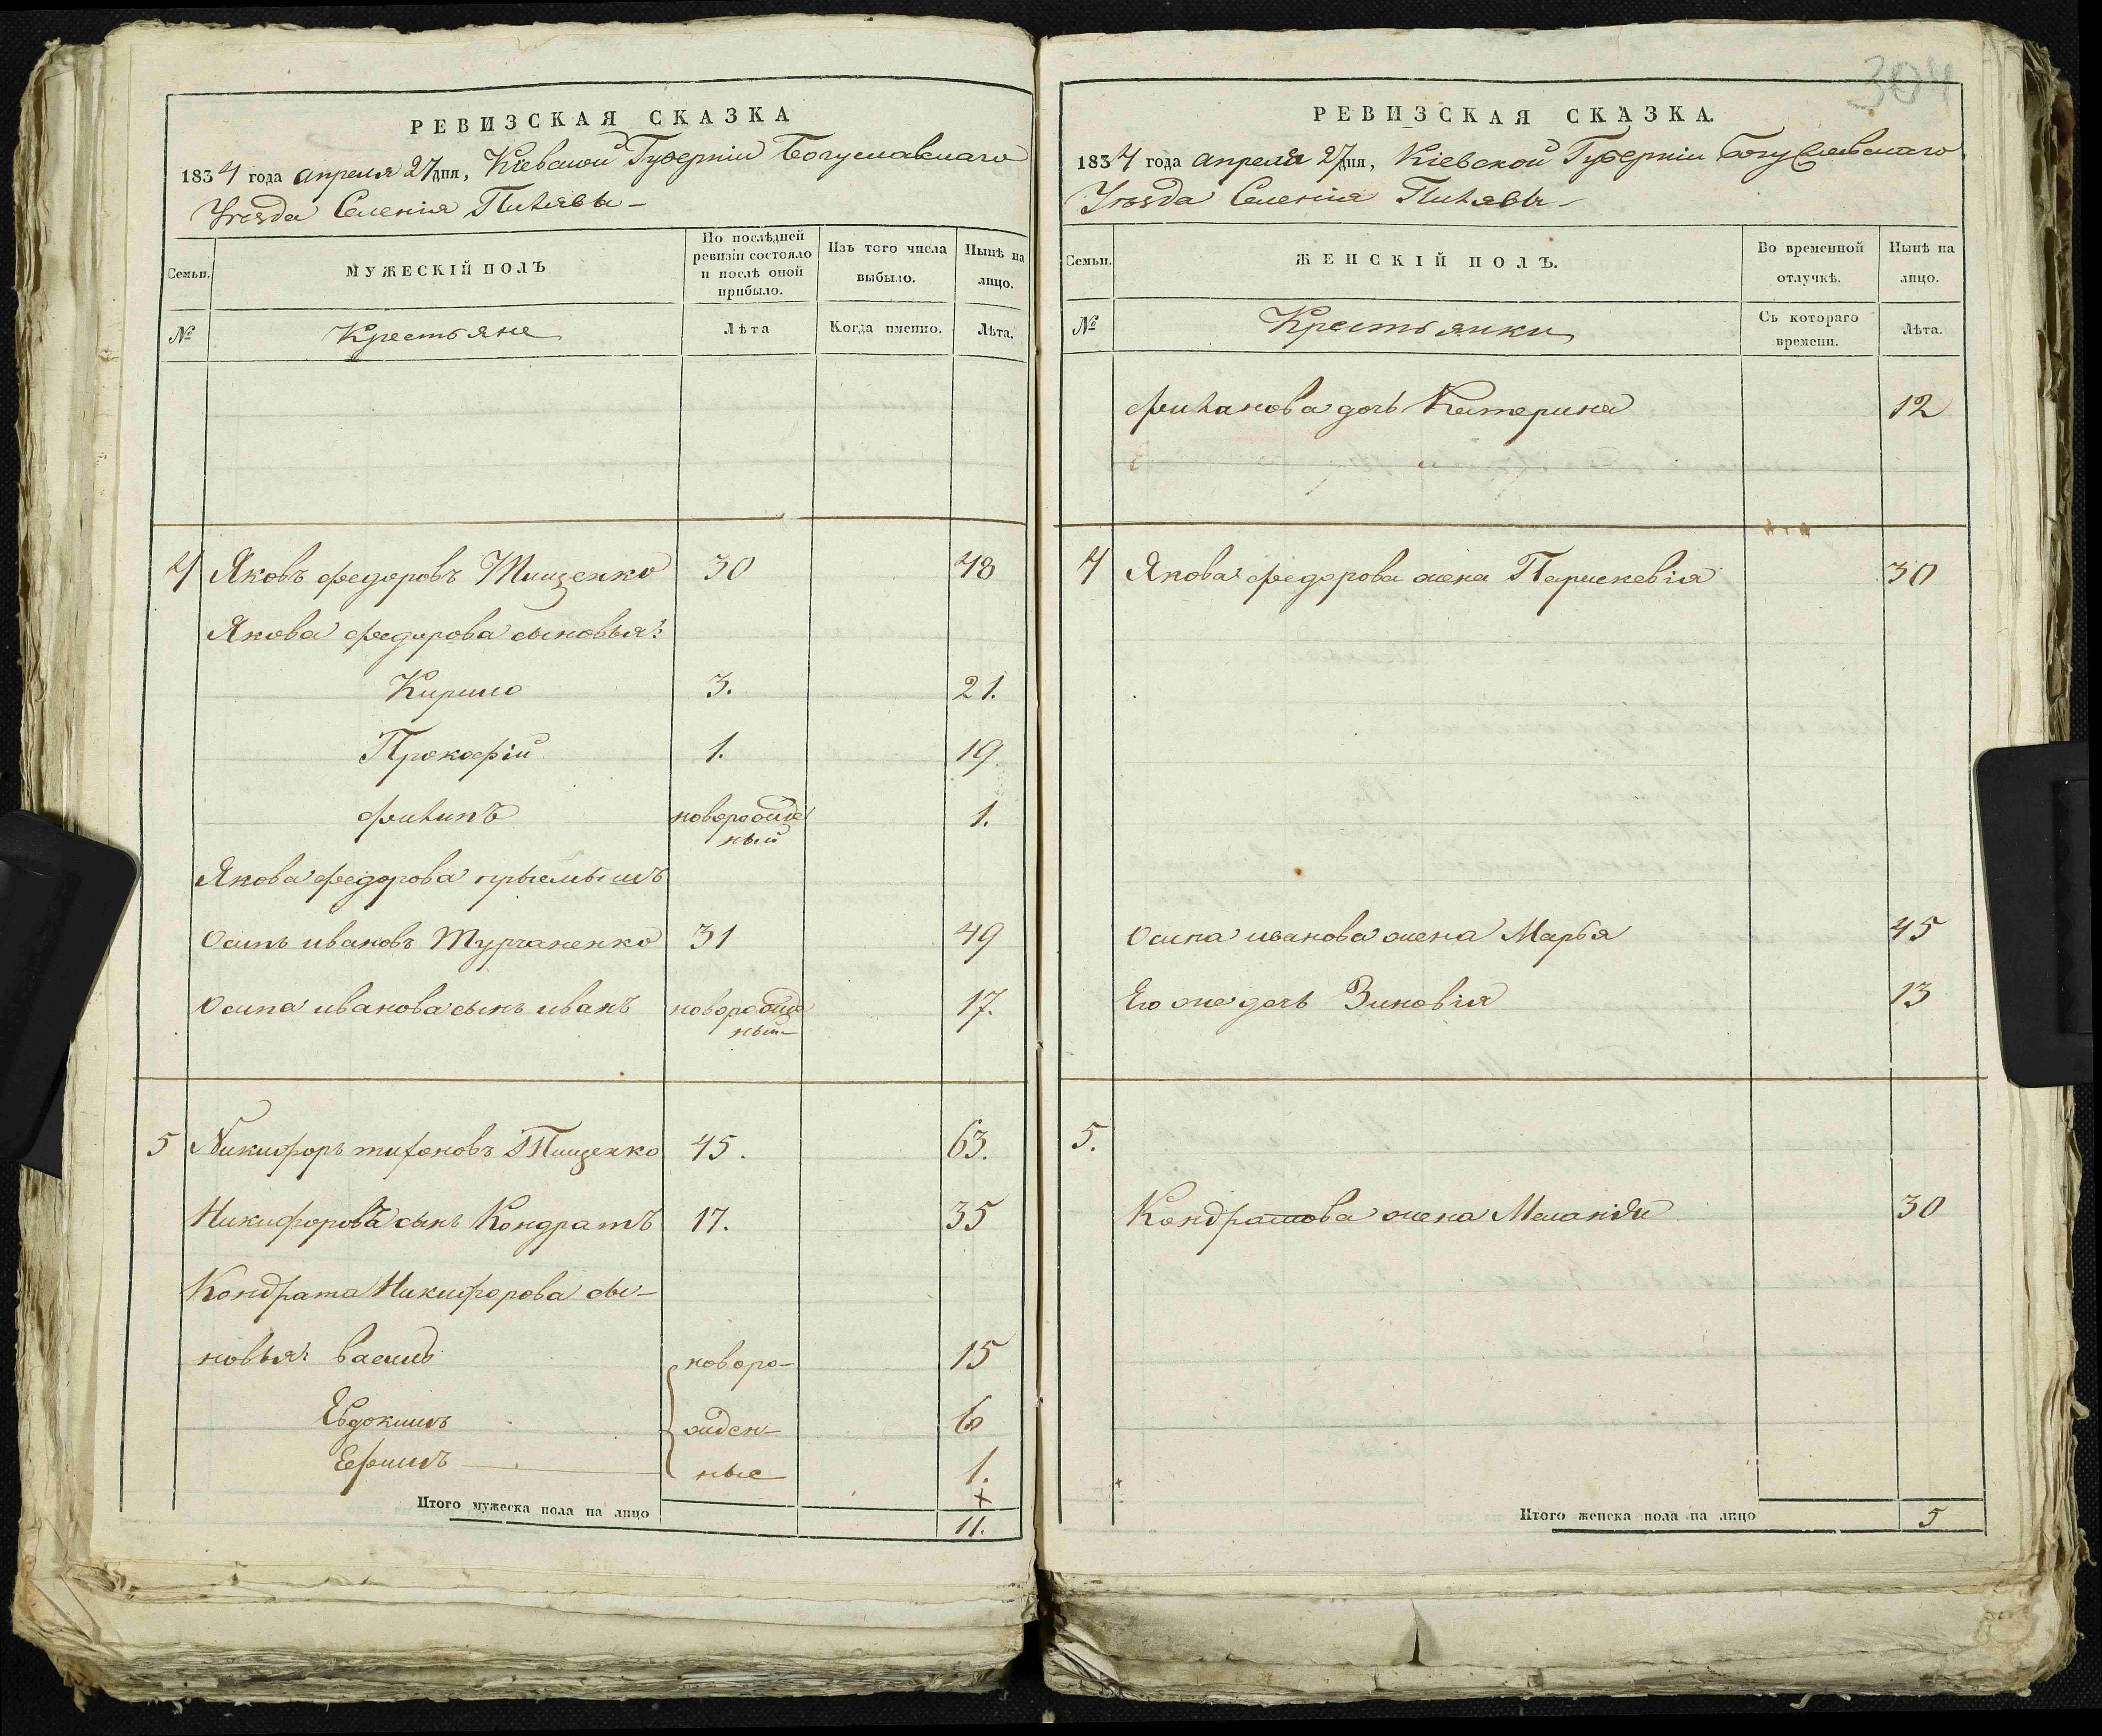 304
РЕВИЗСКАЯ СКАЗКА
1834 года апреля 27 дня, Кіевской Губерніи Богуславскаго
Уѣзда Селенія Пилявы-
Семьи.
МУЖЕСКІЙ ПОЛЪ
По послѣдней
ревизіи состояло
и послѣ оной
прибыло.
Изъ того числа
выбыло.
Нынѣ на
лицо.
№
Крестьяне
Лѣта
Когда именно.
Лѣта.
4 Яковъ федоровъ Тищенко 30 48
Якова федорова сыновья:
Кирило 3. 21.
Прокофій 1. 19.
филипъ новорожде 1.
ный
Якова федорова прыемышъ
Осипъ ивановъ Турчаненко 31 49
Осипа иванова сынъ иванъ новорожде 17.
ный-
5 Никифоръ тихоновъ Тищенко 45. 63.
Никифоровъ сынъ Кондратъ 17. 35
Кондрата Никифорова сы-
новья: василь новоро- 15
Евдокимъ жден- 6
Ефимъ ные 1.
Итого мужеска пола на лицо 11.
РЕВИЗСКАЯ СКАЗКА.
1834 года апреля 27 дня, Кіевской Губерніи Богуславскаго
Уѣзда Селенія Пилявы-
Семьи.
ЖЕНСКІЙ ПОЛЪ.
Во временной
отлучкѣ.
Нынѣ на
лицо.
№
Крестьянки
Съ котораго
времени.
Лѣта.
филипова дочь Катерина 12
4 Якова федорова жена Парискевія 30
Осипа иванова жена Марья 45
Его же дочь Зиновія 13
5.
Кондратова жена Меланія 30
Итого женска пола на лицо 5